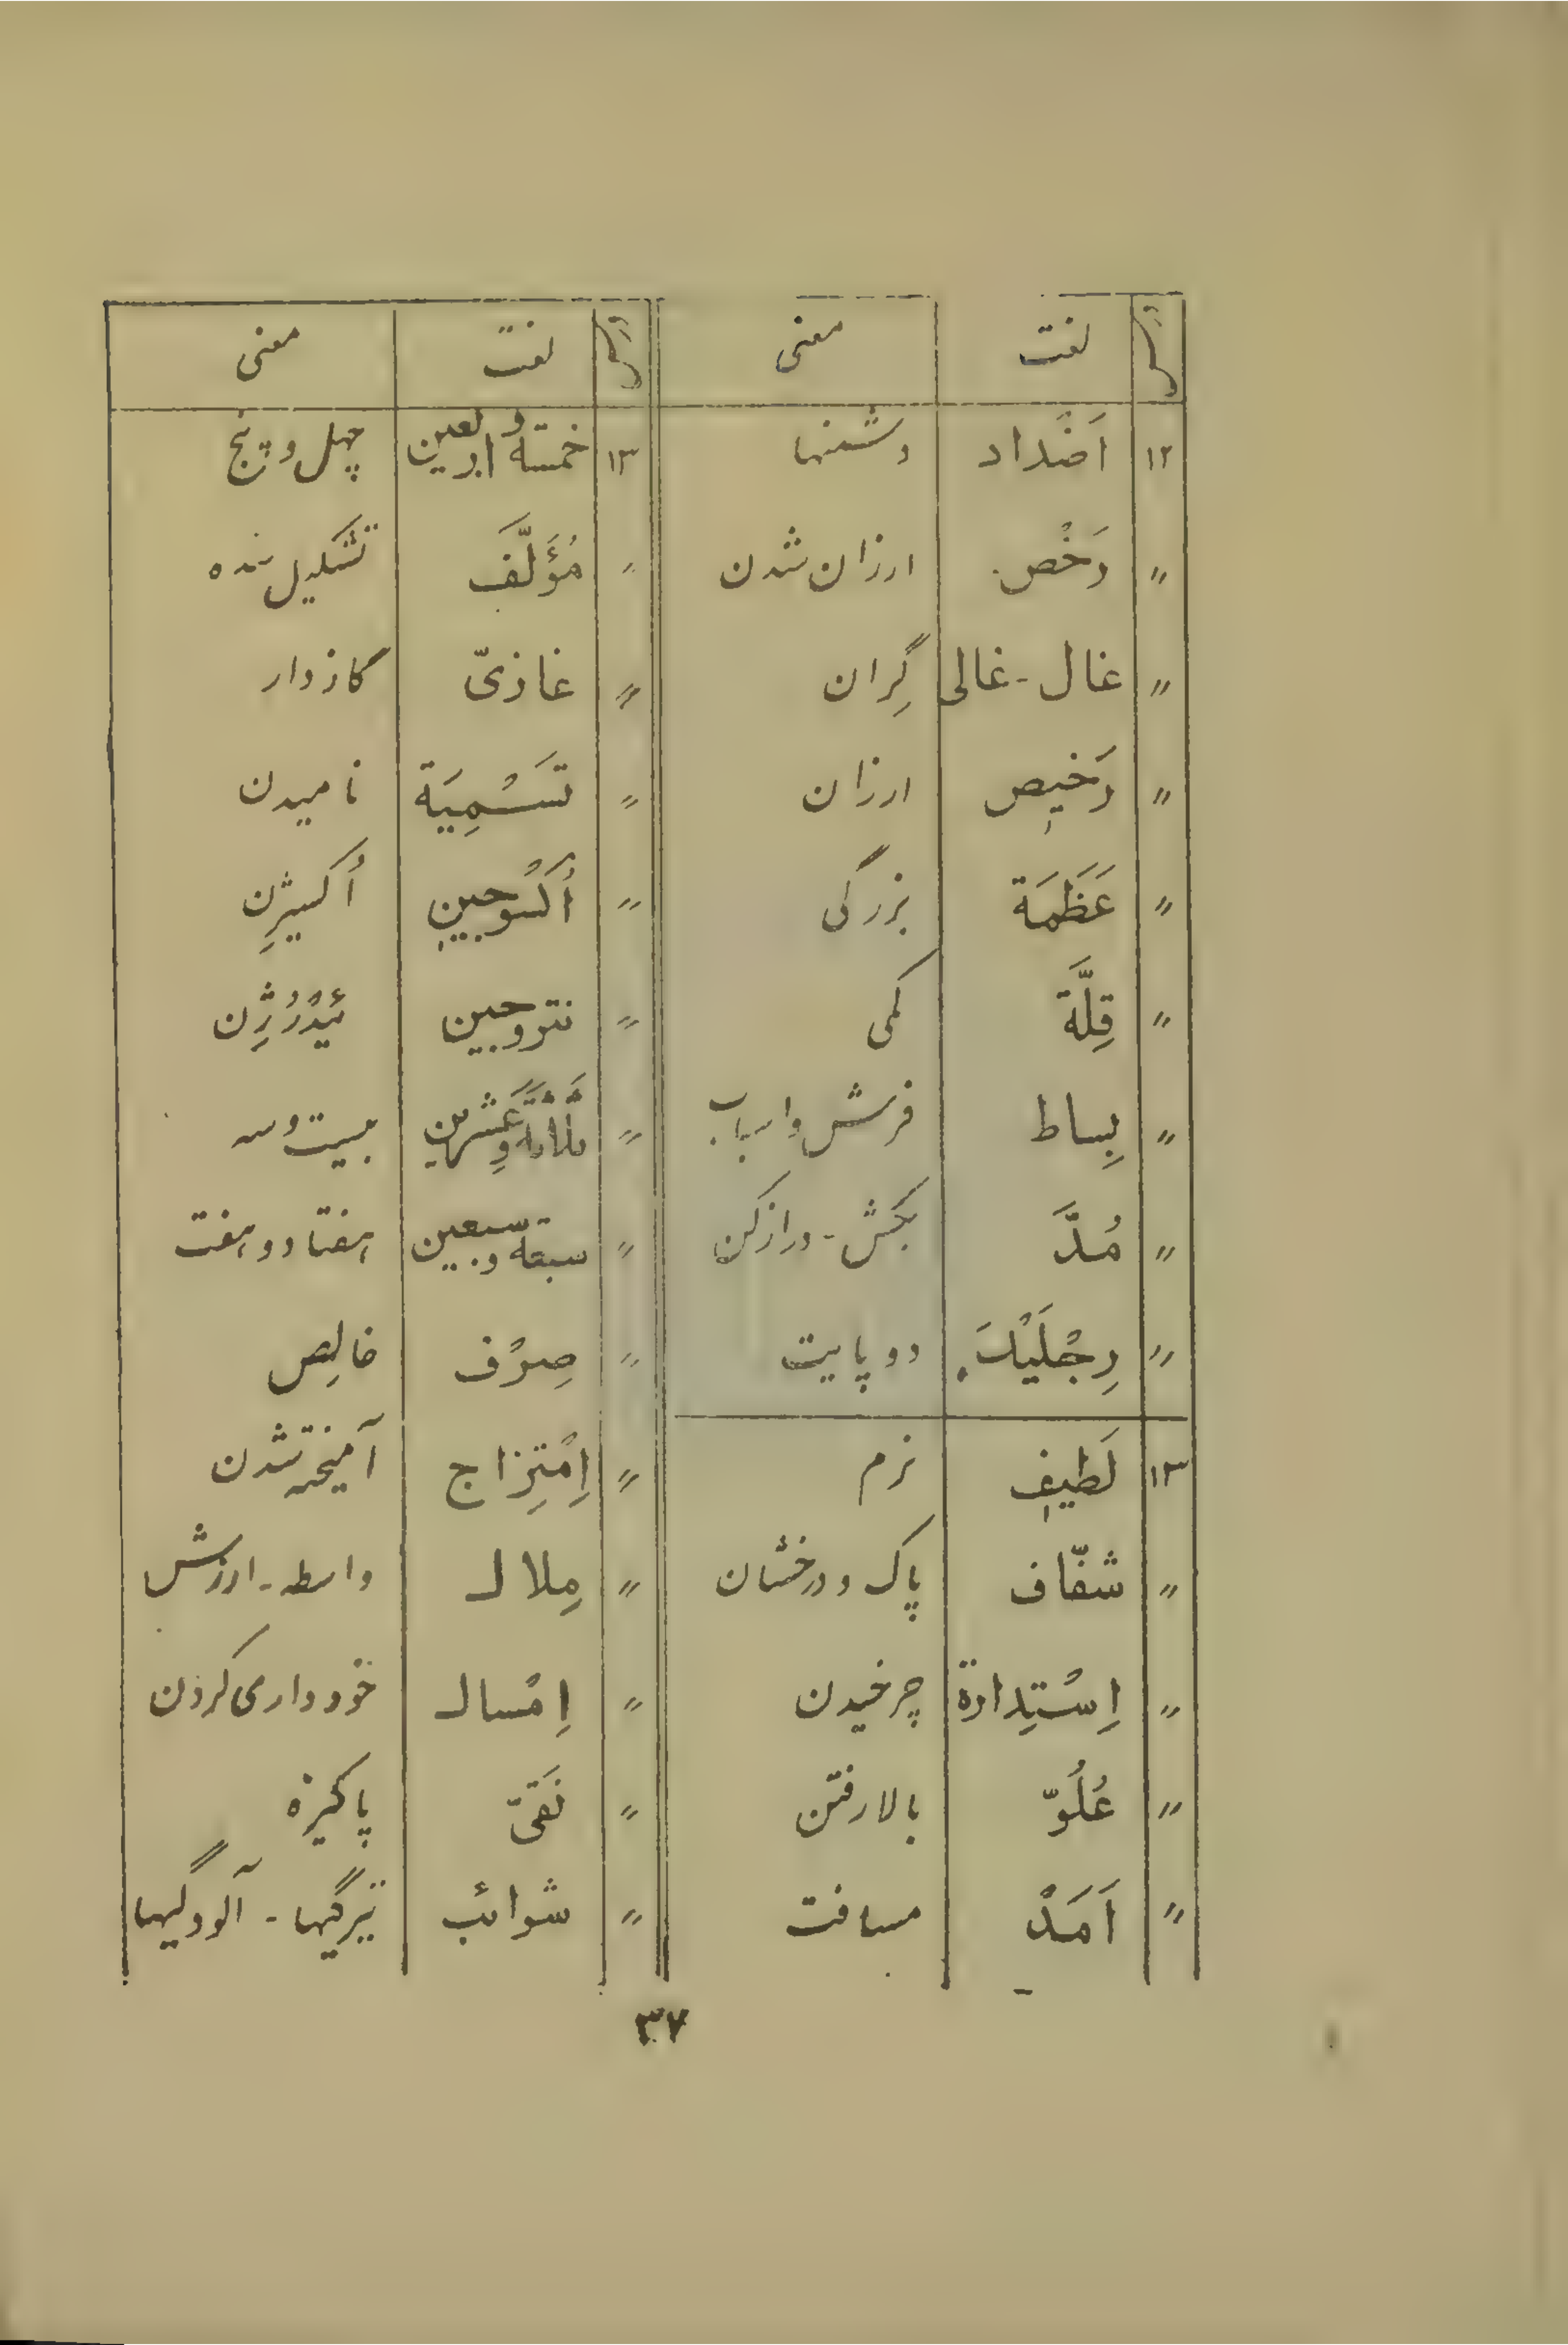 لغت معنی
۱۲ اَضْداد دشمنها
〃 رَخْص ارزان شدن
〃 غال - غالی گِران
〃 رَخیص ارزان
〃 عَظَمَة بزرگی
〃 قِلَّة کمی
〃 بِساط فرش و اسباب
〃 مُدَّ بکش - دراز کن
〃 رِجْلَیْكَ دو پایت
۱۳ لَطیف نرم
〃 شفّاف پاک و درخشان
〃 اِسْتِدارة چرخیدن
〃 عُلُوّ بالا رفتن
〃 اَمَدْ مسافت
لغت معنی
۱۳ خمسة و اربعین چهل و پنج
〃 مُؤَلَّف تشکیل شده
〃 غازیّ گازدار
〃 تَسْمِیَة نامیدن
〃 أُکْسُوجین اُکسیژِن
〃 نتروجین
〃 ثَلاثَة وَعَشرین بیست و سه
〃 سبعة و سبعین هفتاد و هفت
〃 صِرْف خالِص
〃 اِمْتِزاج آمیخته شدن
〃 مِلاك واسطه - ارزش
〃 اِمْساك خودداری کردن
〃 نَقیّ پاکیزه
〃 شوائب تیرگیها - آلودگیها
۳۷